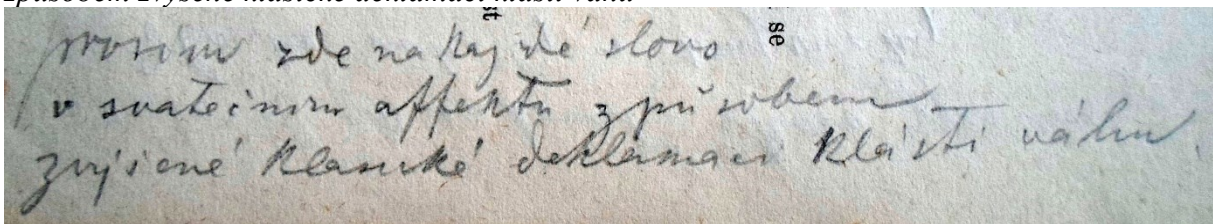 způsobem zvýšené klasické deklamaci klásti váhu
st
se
prosím zde na každé slovo
v svatečním affektu způsobem
zvýšené klasické deklamaci klásti váhu.